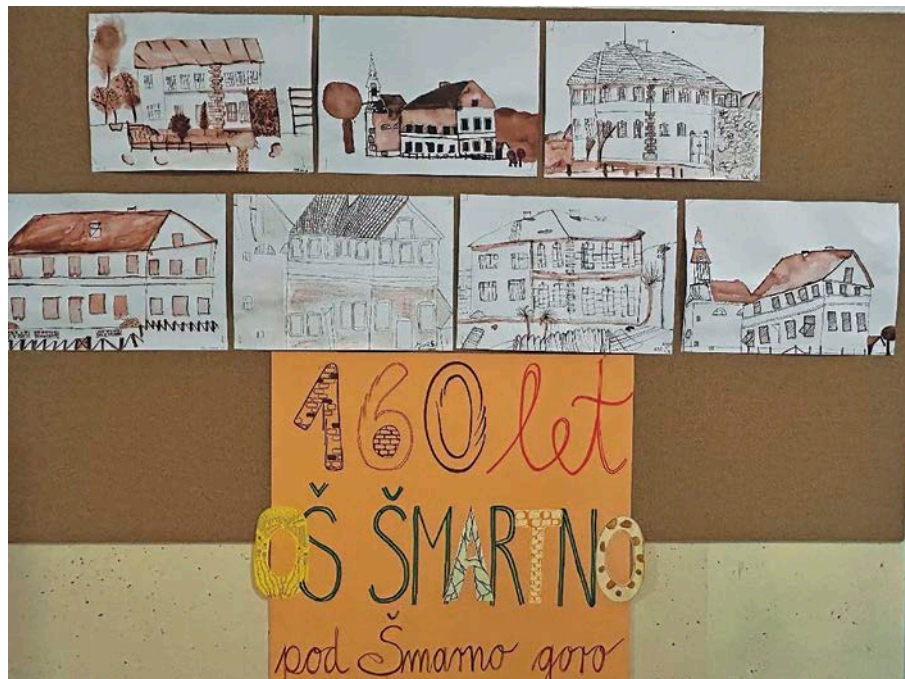 160 let
OŠ ŠMARTNO
pod Šmarno goro